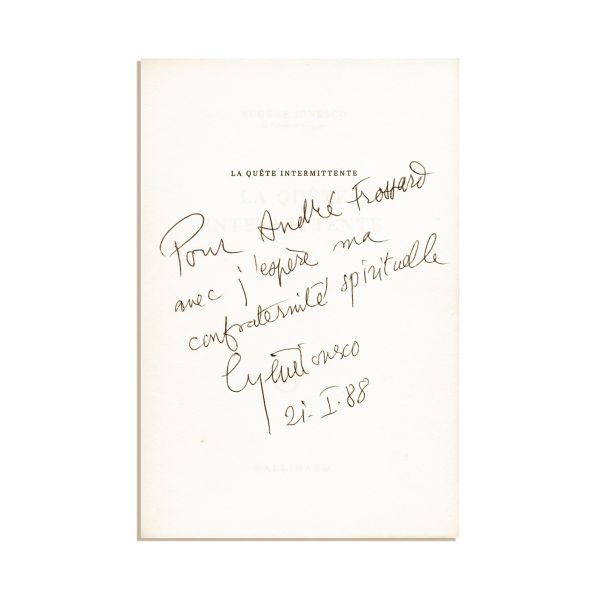 EUGÈNE IONESCO
LA QUÊTE INTERMITTENTE
LA QUÊTE
INTERMITTENTE
Pour André Frossard
avec j'espère ma
confraternité spirituelle
Eugène Ionesco
21-I-88
GALLIMARD